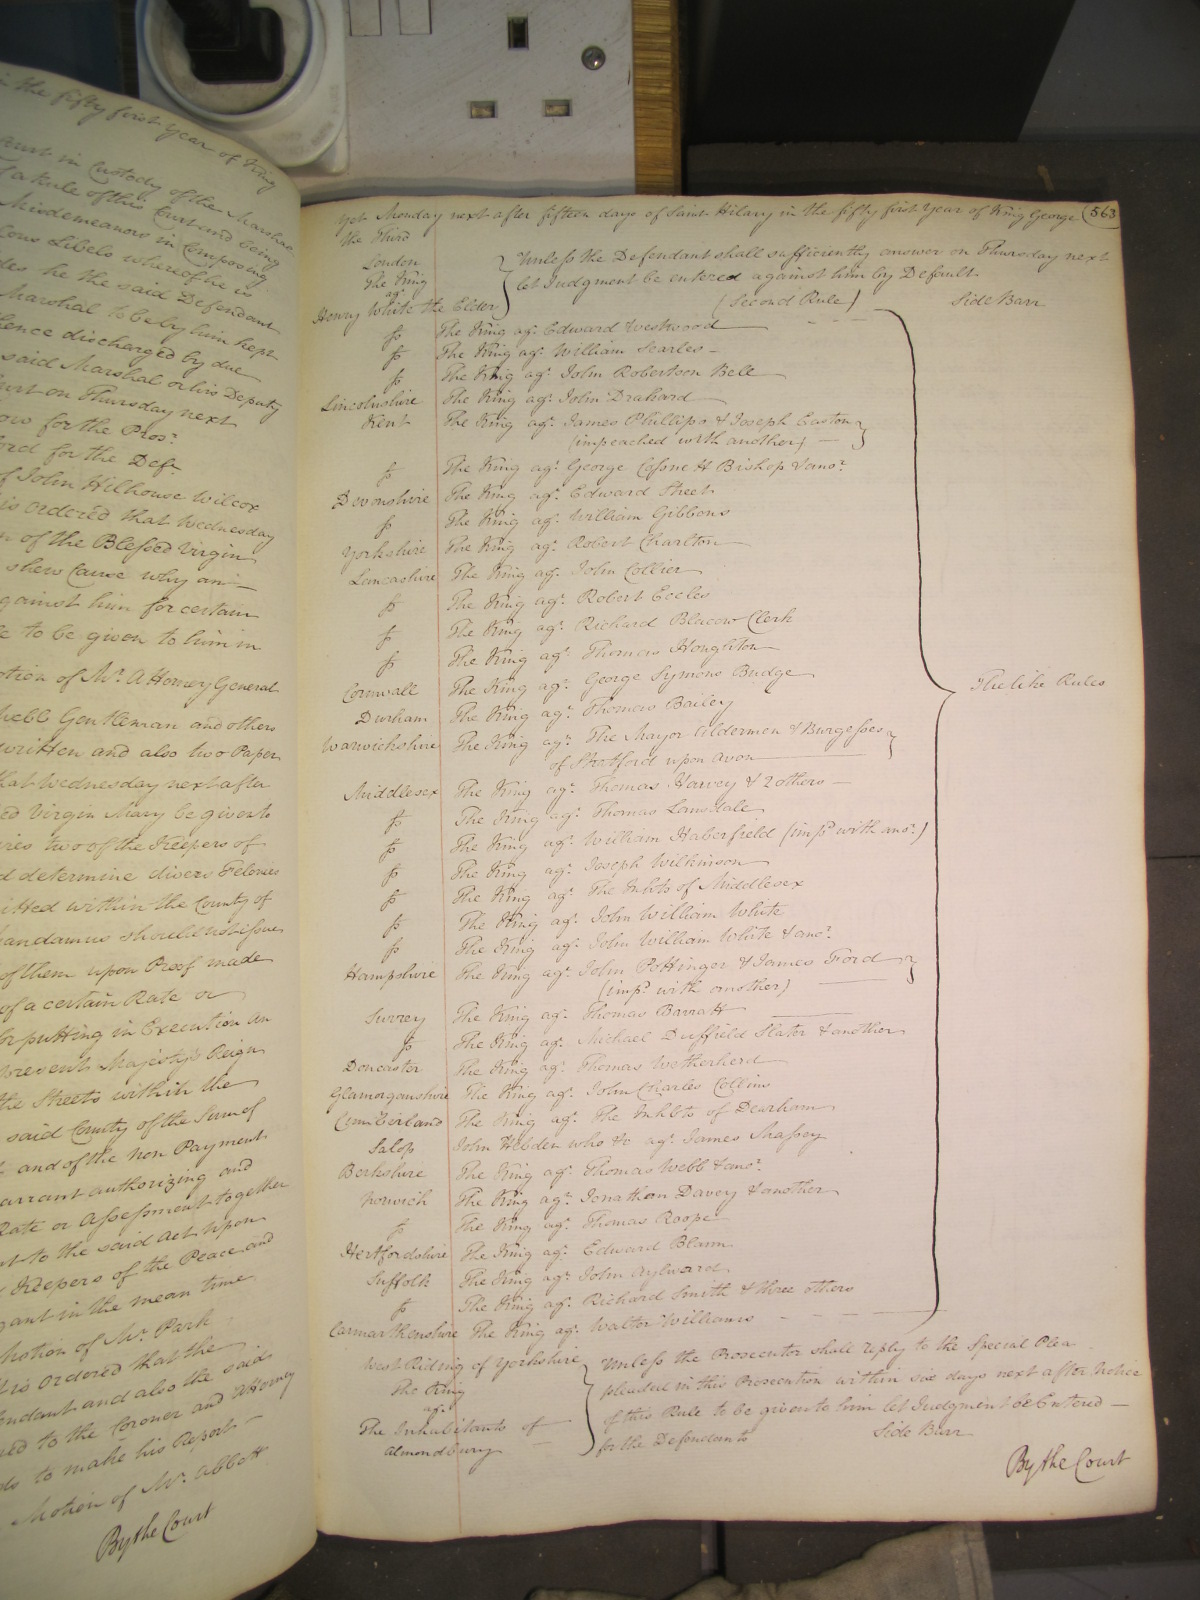 in the fifty first year of King
Court in Custody of the Marshal
of a Rule of this Court and being
Misdemeanors in Composing
Libels whereof he is
he the said Defendant
Marshal to be by him kept
hence discharged by due
said Marshal or his Deputy
Court on Thursday next
for the Pros.r
for the Def.t
of John Hilhouse Wilcox
is ordered that Wednesday
of the Blessed Virgin
shew Cause why an
against him for certain
to be given to him in
Motion of Mr. Attorney General
Webb Gentleman and others
written and also two Paper
that Wednesday next after
Virgin Mary be given to
two of the Keepers of
determine divers Felonies
committed within the County of
Mandamus should not issue
of them upon Proof made
of a certain Rate or
for putting in Execution an
present Majesty's Reign
the Streets within the
said County of the Sum of
and of the non Payment
Warrant authorizing and
Rate or Assessment together
to the said Act upon
Keepers of the Peace and
in the mean time
Motion of Mr. Park
it is Ordered that the
Defendant and also the said
to the Coroner and Attorney
to make his Report
Motion of Mr. Abbott
By the Court
Yet Monday next after fifteen days of Saint Hilary in the fifty first Year of King George 563
the Third
London
The King
agt.
Henry White the Elder
Unless the Defendant shall sufficiently answer on Thursday next
let Judgment be entered against him by Default
(Second Rule) Side Barr
fs The King agt. Edward Westwood
fs The King agt. William Searles
fs The King agt. John Robertson Bell
Lincolnshire The King agt. John Drakard
Kent The King agt. James Phillips & Joseph Easton
(impeached with another)
fs The King agt. George Cossne H Bishop & anor.
Devonshire The King agt. Edward Street
fs The King agt. William Gibbons
Yorkshire The King agt. Robert Charlton
Lancashire The King agt. John Collier
fs The King agt. Robert Eccles
fs The King agt. Richard Blacow Clerk
fs The King agt. Thomas Houghton
Cornwall The King agt. George Symons Budge
Durham The King agt. Thomas Bailey
Warwickshire The King agt. The Mayor Aldermen & Burgesses
of Stratford upon Avon
Middlesex The King agt. Thomas Harvey & 2 others
fs The King agt. Thomas Lansdale
fs The King agt. William Haberfield (impd. with anor.)
fs The King agt. Joseph Wilkinson
fs The King agt. The Inhbts of Middlesex
fs The King agt. John William White
fs The King agt. John William White & anor.
Hampshire The King agt. John Pottinger & James Ford
(impd. with another)
Surrey The King agt. Thomas Barratt
fs The King agt. Michael Duffield Slater & another
Doncaster The King agt. Thomas Wetherherd
Glamorganshire The King agt. John Charles Collins
Cumberland The King agt. The Inhbts of Dearham
Salop John Hebden who &c agt. James Shassey
Berkshire The King agt. Thomas Webb & anor.
Norwich The King agt. Jonathan Davey & another
fs The King agt. Thomas Roope
Hertfordshire The King agt. Edward Blann
Suffolk The King agt. John Aylward
fs The King agt. Richard Smith & three others
Carmarthenshire The King agt. Walter Williams
The like Rules
West Riding of Yorkshire
The King
agt.
The Inhabitants of
Almondbury
Unless the Prosecutor shall reply to the Special Plea
pleaded in this Prosecution within six days next after Notice
of this Rule to be given to him let Judgment be Entered
for the Defendants Side Barr
By the Court